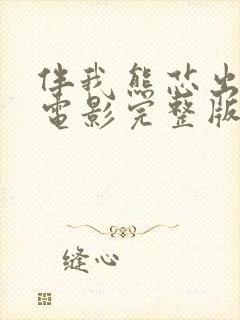 伴我熊芯出
电影完整版
缝心